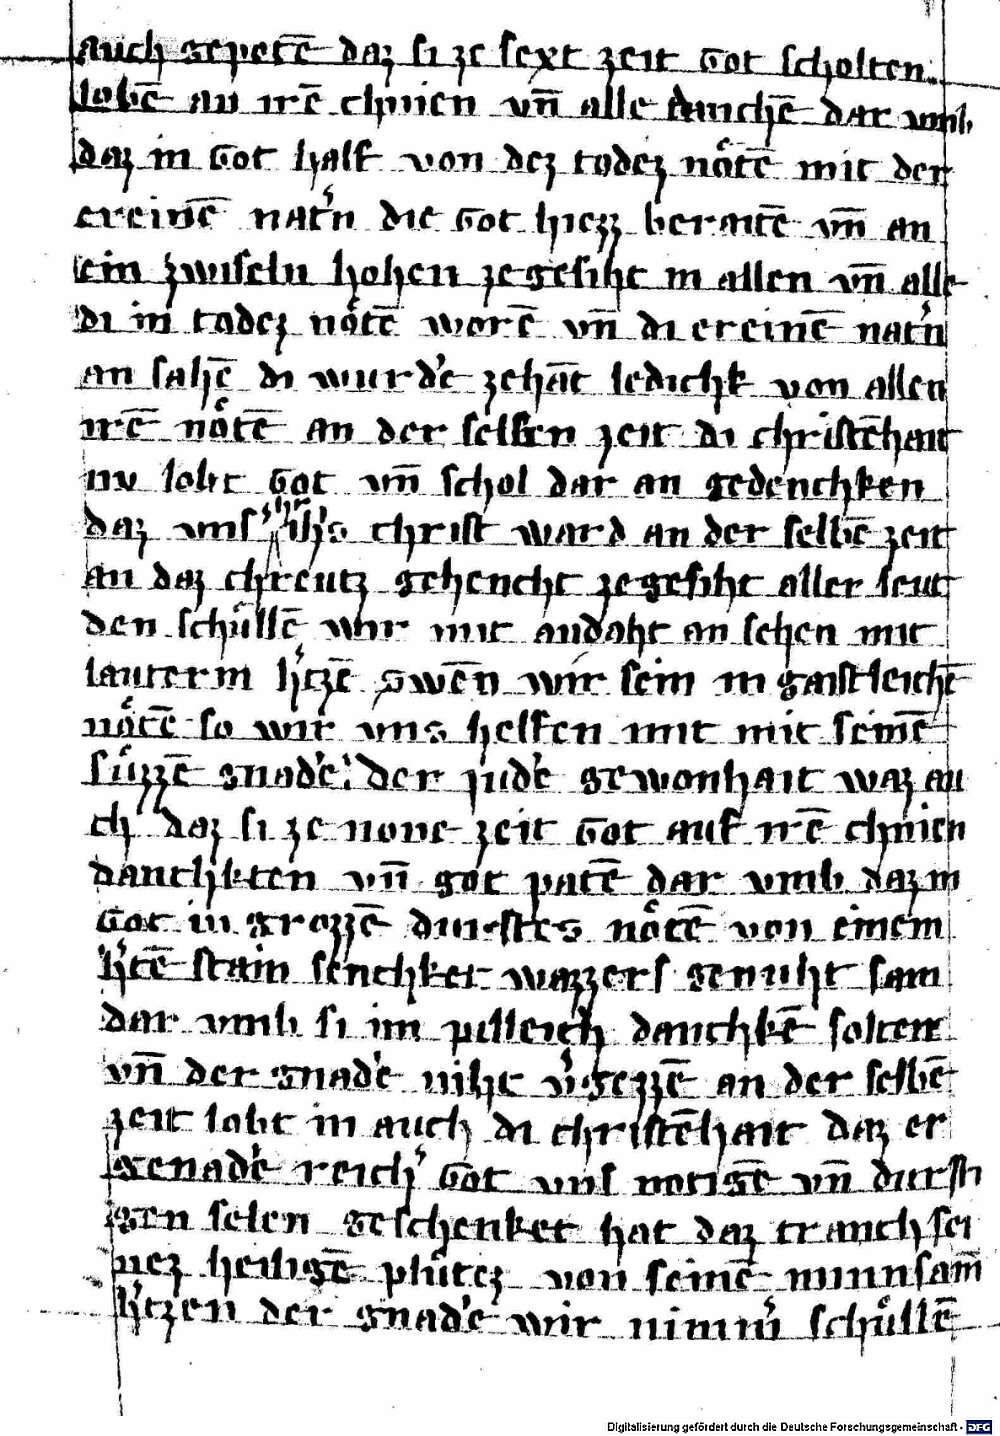 auch gepetē daz si ze sext zeit got scholten
lobē an irē chnien vn̄ alle danchē dar vmb
daz in got half von dez todez nötē mit der
ereinē nat'n die got hiezz beraitē vn̄ an
ein zwiseln hohen ze gesiht in allen vn̄ alle
di in todez nötē worē vn̄ di ereinē nat'n
an sahē di wurd'e zehāt ledichk von allen
irē nötē an der selben zeit di christēhait
nv lobt got vn̄ schol dar an gedenchken
daz vns ih's christ ward an der selbē zeit
an daz chreutz gehencht ze gesiht aller leut
den schüllē wir mit andaht an sehen mit
lauterm h'tzē swēn wir sein in gaistleichē
nötē so wir vns helfen mit mit seinē
süzzē gnad'e. der jud'e gewonhait waz au
ch daz si ze none zeit got auf irē chnien
danchkten vn̄ got patē dar vmb daz in
got in grozzē durstes nötē von einem
h'tē stain senchket wazzers genuht sam
dar vmb si im pilleich danchkē solten
vn̄ der gnad'e niht v'gezzē an der selbē
zeit lobt in auch di christēhait daz er
genad'e reich' got vns notigē vn̄ dursti
gen selen geschenket hat daz tranch sei
nez heiligē plütez von seinē minnsam̄
h'tzen der gnad'e wir nimm' schüllē
Digitalisierung gefördert durch die Deutsche Forschungsgemeinschaft - DFG